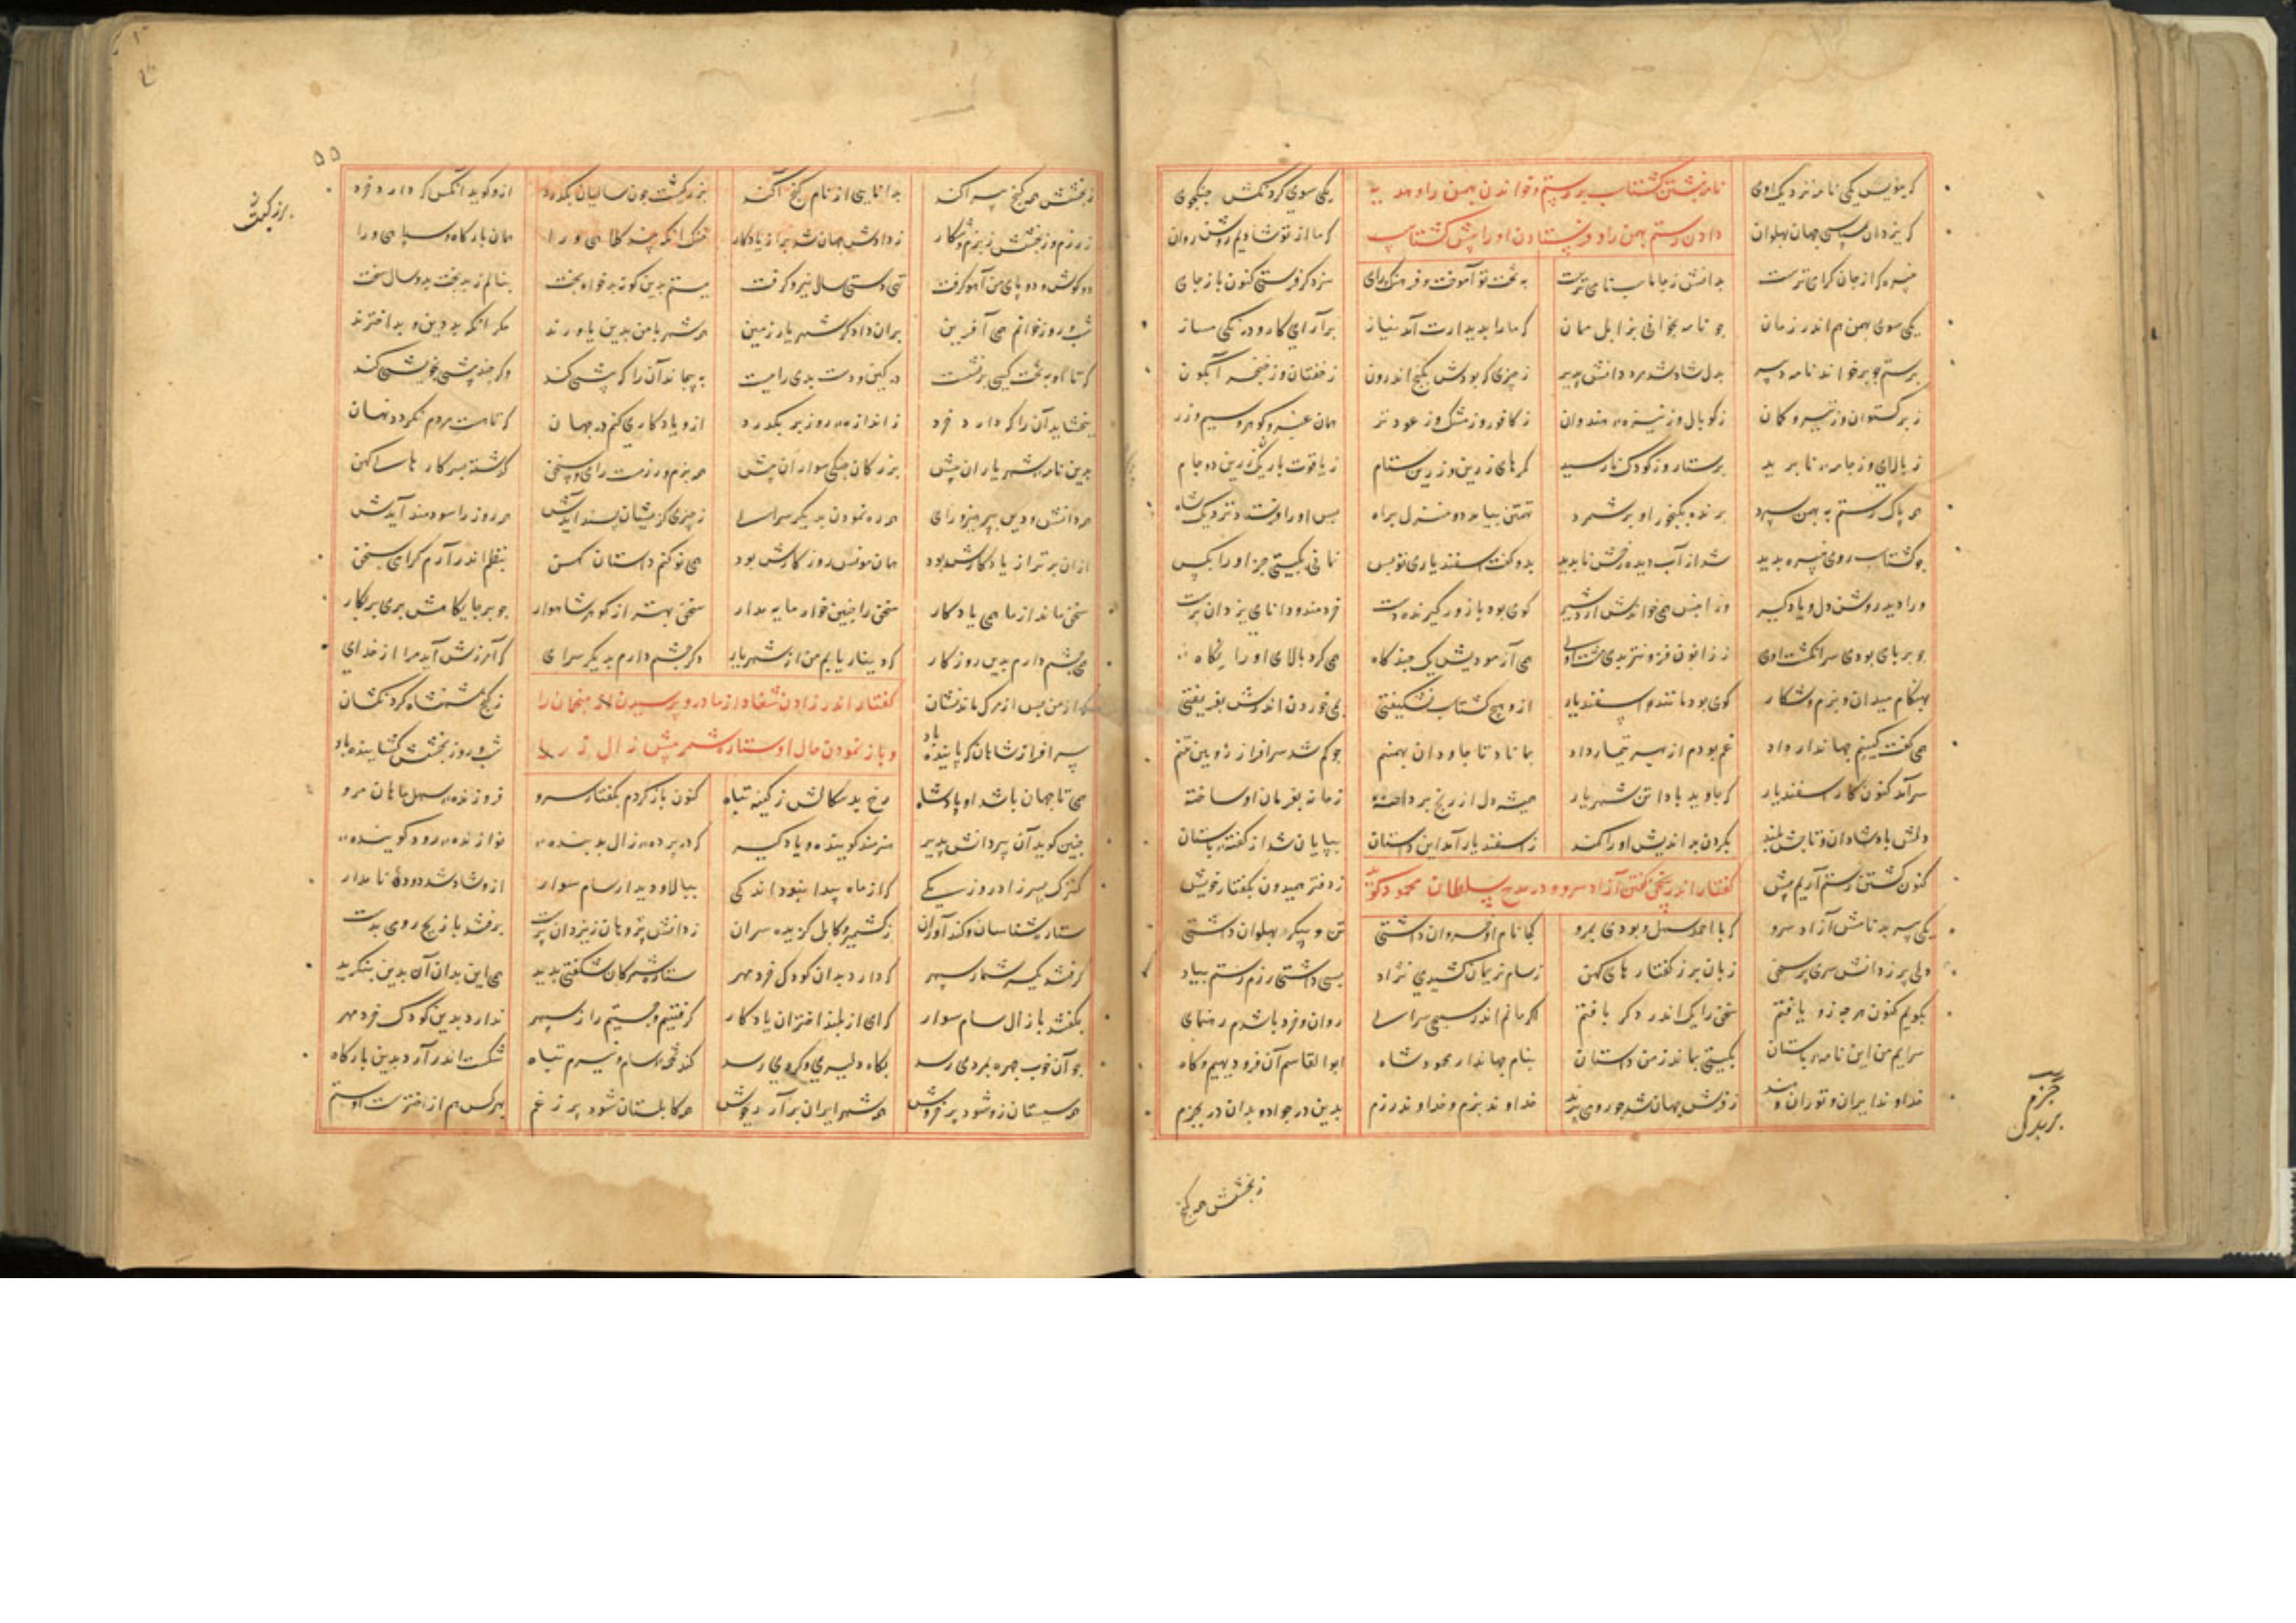 که بنویس یکی نامه نزدیک اوی
نامه نبشتن گشتاسب برستم و خواندن بهمن را و هدیه
یکی سوی گردنکش جنگجوی
که یزدان سپاس ای جهان پهلوان
دادن رستم بهمن را و فرستادن او را پیش گشتاسب
که ما از تو شادیم و روشن روان
نبیره که از جان گرامی ترست بدانش ز جاماسب نامی ترست
به بخت تو آموخت فرهنگ و رای سزد گر فرستی کنون باز جای
یکی سوی بهمن هم اندر زمان جو نامه بخوانی بزابل ممان
که ما را بدیدارت آمد نیاز برآرای کار و درنگی مساز
برستم جو برخواند نامه دبیر بدل شاد شد مرد دانش پذیر
ز چیزی که بودش بگنج اندرون ز خفتان وز خنجر آبگون
ز برگستوان وز تیر و کمان ز کوپال وز نیزه هندوان
ز کافور وز مشک وز عود تر همان عنبر و گوهر و سیم و زر
ز بالای وز جامه نابرید پرستار وز کودک نارسید
کمرهای زرین و زرین ستام ز یاقوت با زنگ زرین دو جام
همه پاک رستم به بهمن سپرد برنده بگنجور او برشمرد
تهمتن بیامد دو منزل براه پس او را فرستاد نزدیک شاه
جو گشتاسب روی نبیره بدید شد از آب دیده رخش ناپدید
بدو گفت اسفندیاری تو بس نمانی بگیتی جز او را بکس
ورا دید روشن دل و یادگیر وز آن پس همی خواندش اردشیر
گوی بود با زور گیرنده دست خردمند و دانا و یزدان پرست
جو بر پای بودی سر انگشت اوی ز زانوش فزونتر بدی مشت اوی
همی آزمودیش یک چندگاه همی کرد بالای او را نگاه
بهنگام میدان و بزم و شکار گوی بود مانند اسفندیار
ازو هیچ گشتاسب نشکیفتی بمی خوردن اندوش بفریفتی
همی گفت کینم جهاندار داد غمی بودم از بهر تیمار داد
بماناد تا جاودان بهمنم جو گم شد سرافراز رویین تنم
سرآمد کنون کار اسفندیار که جاوید بادا تن شهریار
همیشه دل از رنج پرداخته زمانه بفرمان او ساخته
دلش باد شادان و تاجش بلند بگردن بداندیش او را کمند
ز اسفندیار آمد این داستان بپایان شد از گفته باستان
کنون کشتن رستم آریم پیش
گفتار اندر سخن گفتن آزاد سرو و در مدح سلطان محمود گوید
ز دفتر همیدون بگفتار خویش
یکی پیر بد نامش آزاد سرو که با احمد سهل بودی بمرو
کجا نامه خسروان داشتی تن و پیکر پهلوان داشتی
دلی پر ز دانش سری پر سخن زبان پر ز گفتارهای کهن
بسام نریمان کشیدی نژاد بسی داشتی رزم رستم بیاد
بگویم کنون هرچه زو یافتم سخن را یک اندر دگر بافتم
اگر مانم اندر سپنجی سرای روان و خرد باشدم رهنمای
سرآیم من این نامه باستان بگیتی بماند ز من داستان
بنام جهاندار محمود شاه ابوالقاسم آن فر دیهیم و گاه
خداوند ایران و توران و هند ز فرش جهان شد چو رومی پرند
خداوند بزم و خداوند رزم
جزم
بربدل
ز بخشش همه گنج
۵۵
ز بخشش همه گنج بپراکند بدانایی از نام گنج آگند
بزرگست چون سالیان بگذرد ازو گوید آنکس که دارد خرد
ز رزم وز بخشش ز بزم و شکار ز دادش جهان شد پر از یادگار
خنک آنکه بیند کلاه ورا همان بارگاه و سپاه ورا
دو گوش و دو پای من آهو گرفت تهی دستی و سال نیرو گرفت
ببستم بدین گونه بدخواه بخت بنالم ز بدبخت بد و سال سخت
شب و روز خوانم همی آفرین بران دادگر شهریار زمین
همه شهر با من بدین یاورند مگر آنکه بددین و بداخترند
که تا او بتخت کیی برنشست در کین و دست بدی را ببست
به پیچاند آن را که بیشی کند وگر چند بیشی ز خویشی کند
ببخشاید آن را که دارد خرد ز اندازه روز برنگذرد
ازو یادگاری کنم در جهان که تا هست مردم نگردد نهان
بدین نامه شهریاران پیش بزرگان جنگی سواران پیش
همه بزم و رزمست رای و سخن گذشته بسی کارهای کهن
همه دانش و دین و پرهیز و رای همه ره نمودن بدیگر سرای
ز چیزی کزیشان پسند آیدش همه روز را سودمند آیدش
ازان برتران یادگارش بود همان مونس روزگارش بود
همی نو کنم داستان کهن بنظم اندر آرم گرامی سخن
سخن ماند از ما همی یادگار سخن را چنین خوارمایه مدار
سخن بهتر از گوهر شاهوار جو بر جایگاهش بری بر بکار
همی چشم دارم بدین روزگار که دینار یابم من از شهریار
دگر چشم دارم بدیگر سرای که آمرزش آید مرا از خدای
که از من پس از مرگ ماند نشان
گفتار اندر زادن شغاد از مادر و پرسیدن از منجمان را
ز گنج شهنشاه گردنکشان
سر افراز شاهان که پاینده باد
و باز نمودن حال او ستاره شمر پیش زال زر را
شب و روز بخشش گشاینده باد
همی تا جهان باشد او پادشاه رخ بدسگالش ز کینه تباه
کنون بازگردم بگفتار سرو فروزنده سهل ماهان مرو
چنین گوید آن پیر دانش پذیر هنرمند گوینده و یادگیر
که در پرده زال بد بنده نوازنده رود گوینده
کنیزک پسر زاد روزی یکی که از ماه پیدا نبود اندکی
ببالا و دیدار سام سوار ازو شاد شد دوده نامدار
ستاره شناسان و کندآوران ز کشمیر و کابل گزیده سران
ز دانش پژوهان یزدان پرست برفتند با زیج رومی بدست
گرفتند یکسر شمار سپهر که دارد بدان کودک خرد مهر
ستاره شمر کان شگفتی بدید همی این بدان آن بدین بنگرید
بگفتند با زال سام سوار که ای از بلند اختران یادگار
گرفتیم و جستیم راز سپهر ندارد بدین کودک خرد مهر
جو آن خوب چهره بمردی رسد بگاه دلیری و گردی رسد
کند تخمه سام نیرم تباه شکست اندر آرد بدین بارگاه
همه سیستان زو شود پر خروش همه شهر ایران برآرد بجوش
همه کابلستان شود پر ز غم